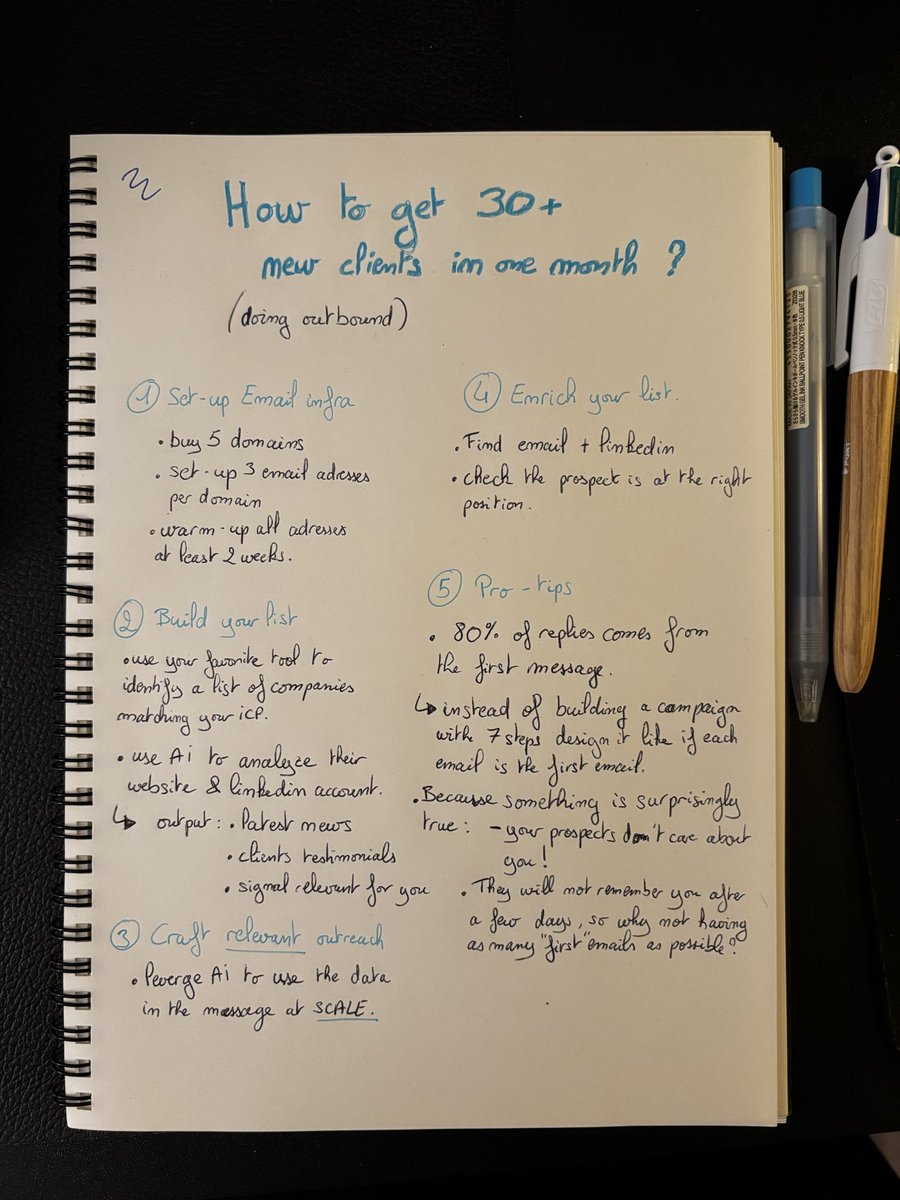 How to get 30+
new clients in one month ?
(doing outbound)
1 Set-up Email infra
• buy 5 domains
• set-up 3 email adresses
per domain
• warm-up all adresses
at least 2 weeks.
2 Build your list
• use your favorite tool to
identify a list of companies
matching your iCP.
• use Ai to analyze their
website & linkedin account.
↳ output : • latest news
• clients testimonials
• signal relevant for you
3 Craft relevant outreach
• leverge Ai to use the data
in the message at SCALE.
4 Enrich your list.
• Find email + linkedin
• check the prospect is at the right
position.
5 Pro-tips
• 80% of replies comes from
the first message.
↳ instead of building a campaign
with 7 steps design it like if each
email is the first email.
• Because something is surprisingly
true : - your prospects don't care about
you!
• They will not remember you after
a few days, so why not having
as many "first" emails as possible?
SMOOTH GEL INK BALLPOINT PEN KNOCK TYPE 0.5 LIGHT BLUE
MADE IN JAPAN